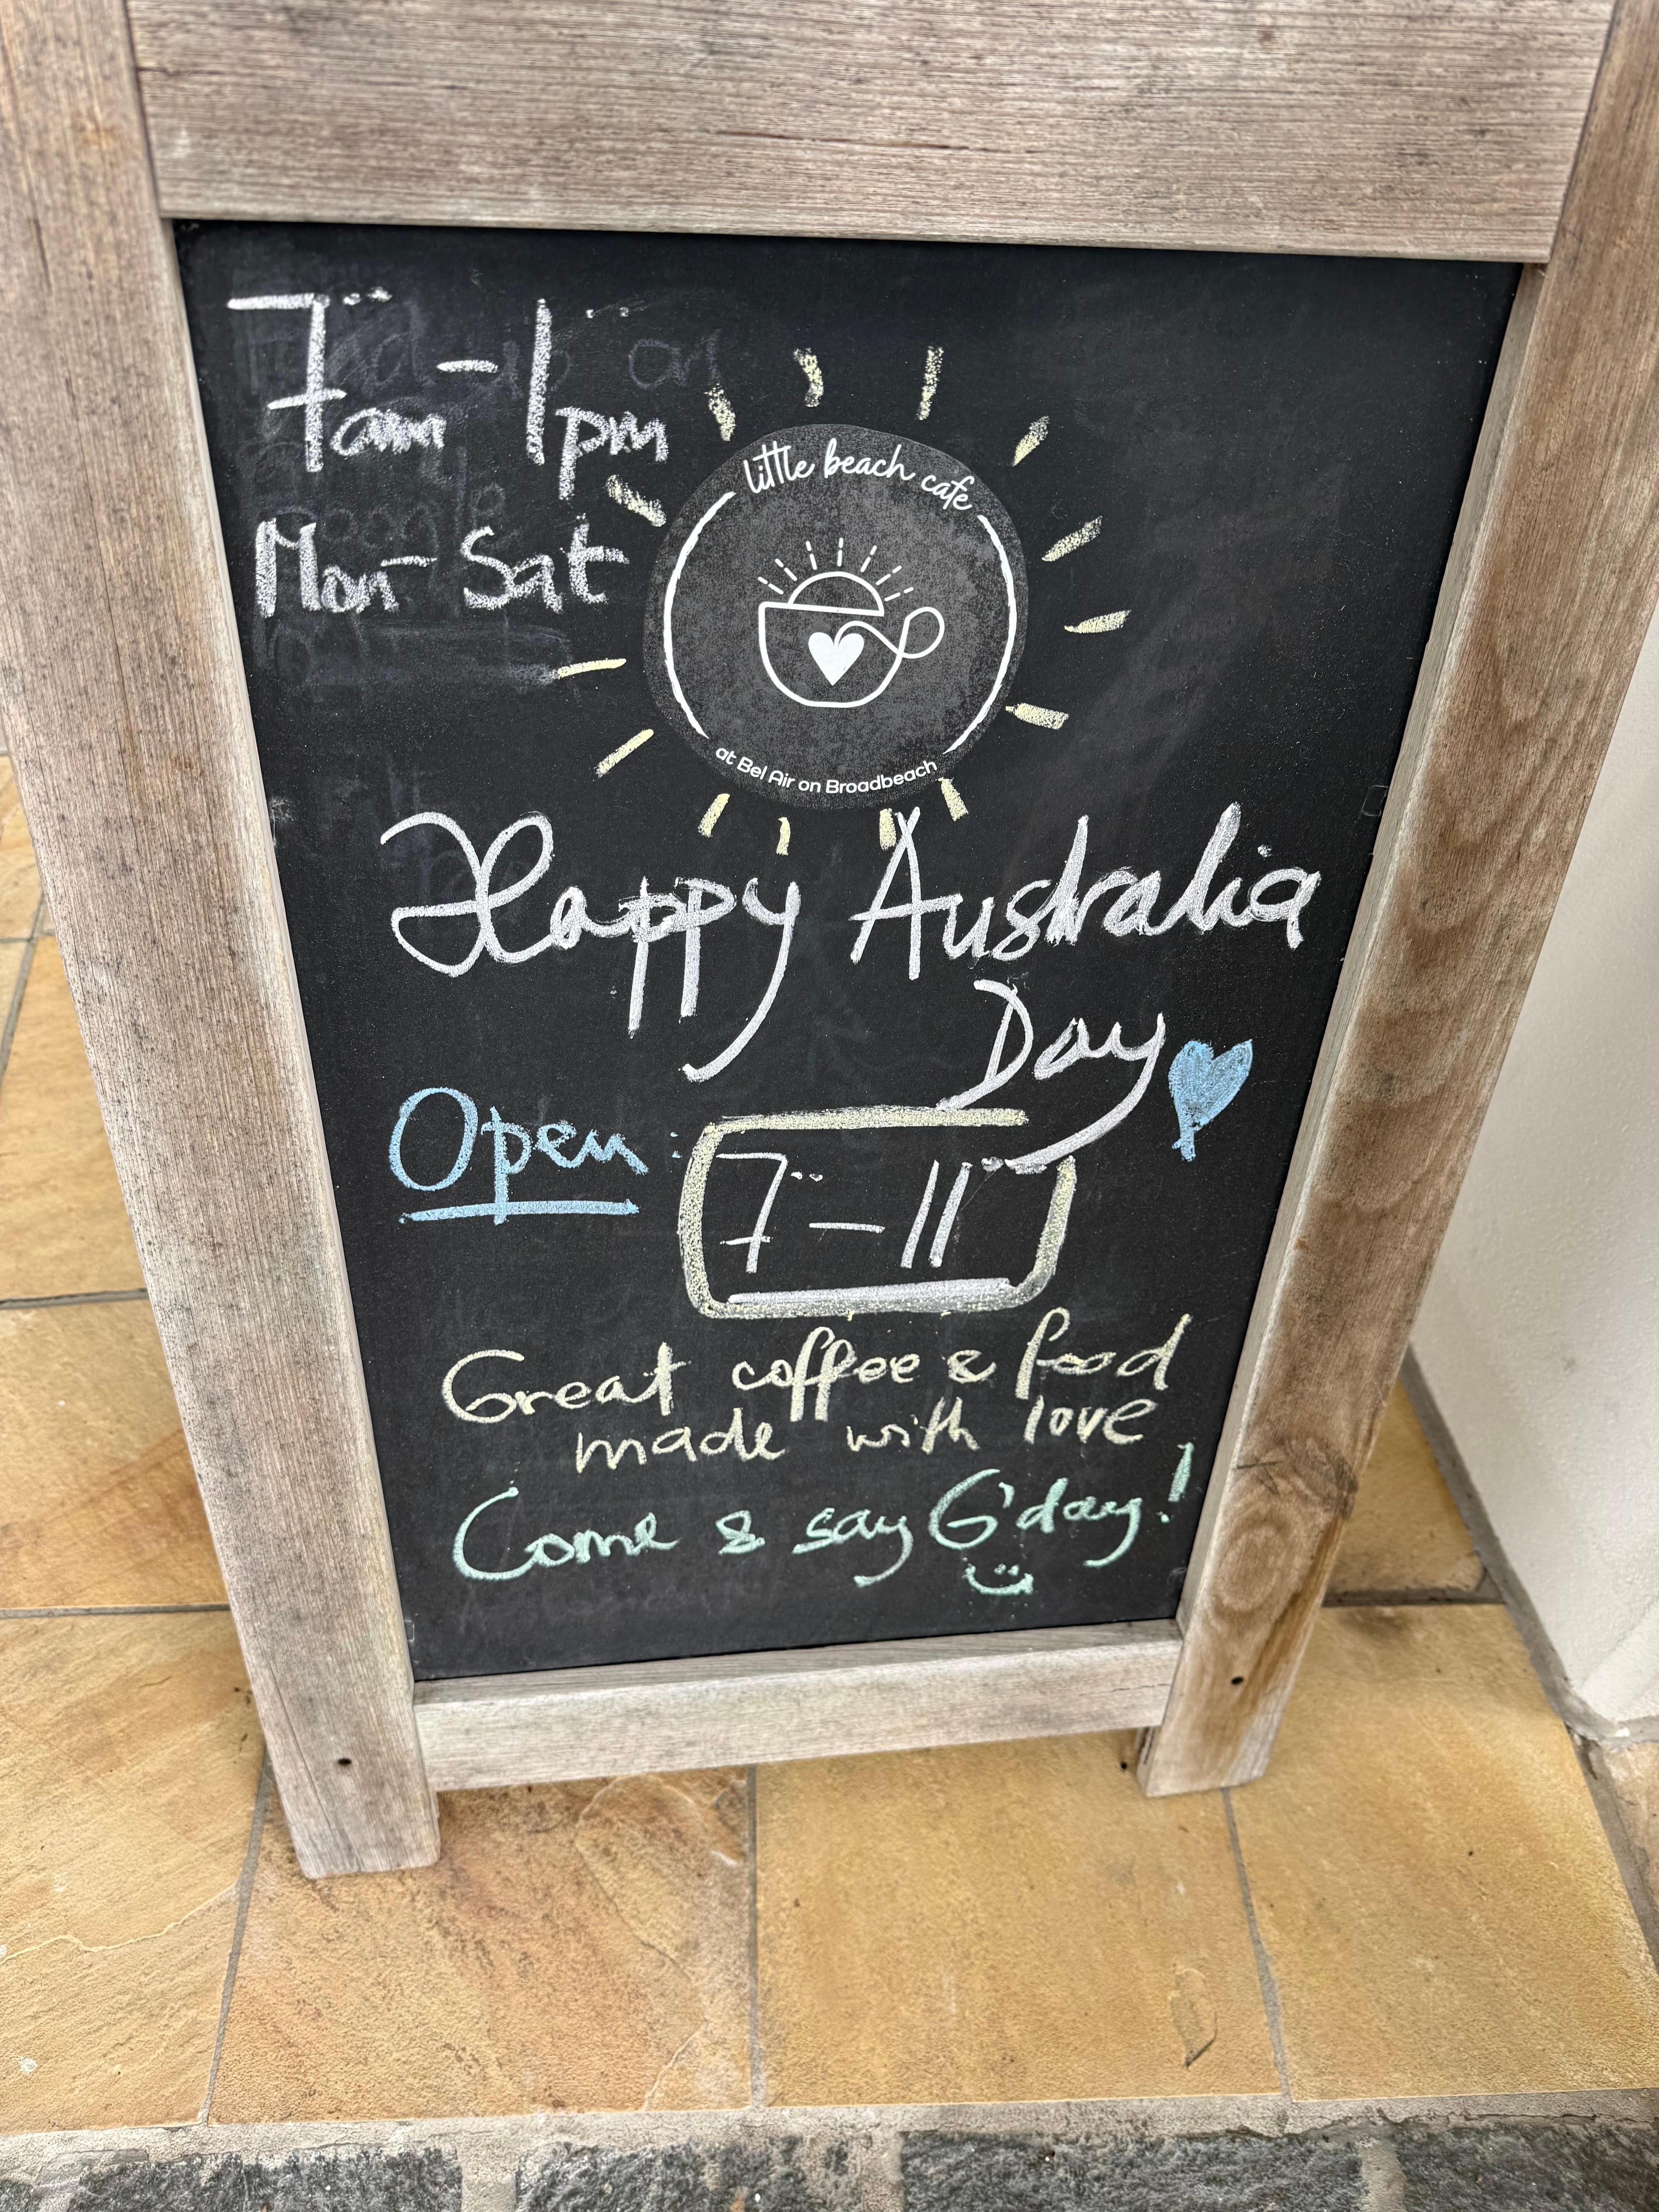 7am-1pm
Mon-Sat
little beach cafe
at Bel Air on Broadbeach
Happy Australia
Day
Open:
7-11
Great coffee & food
made with love
Come & say G'day!